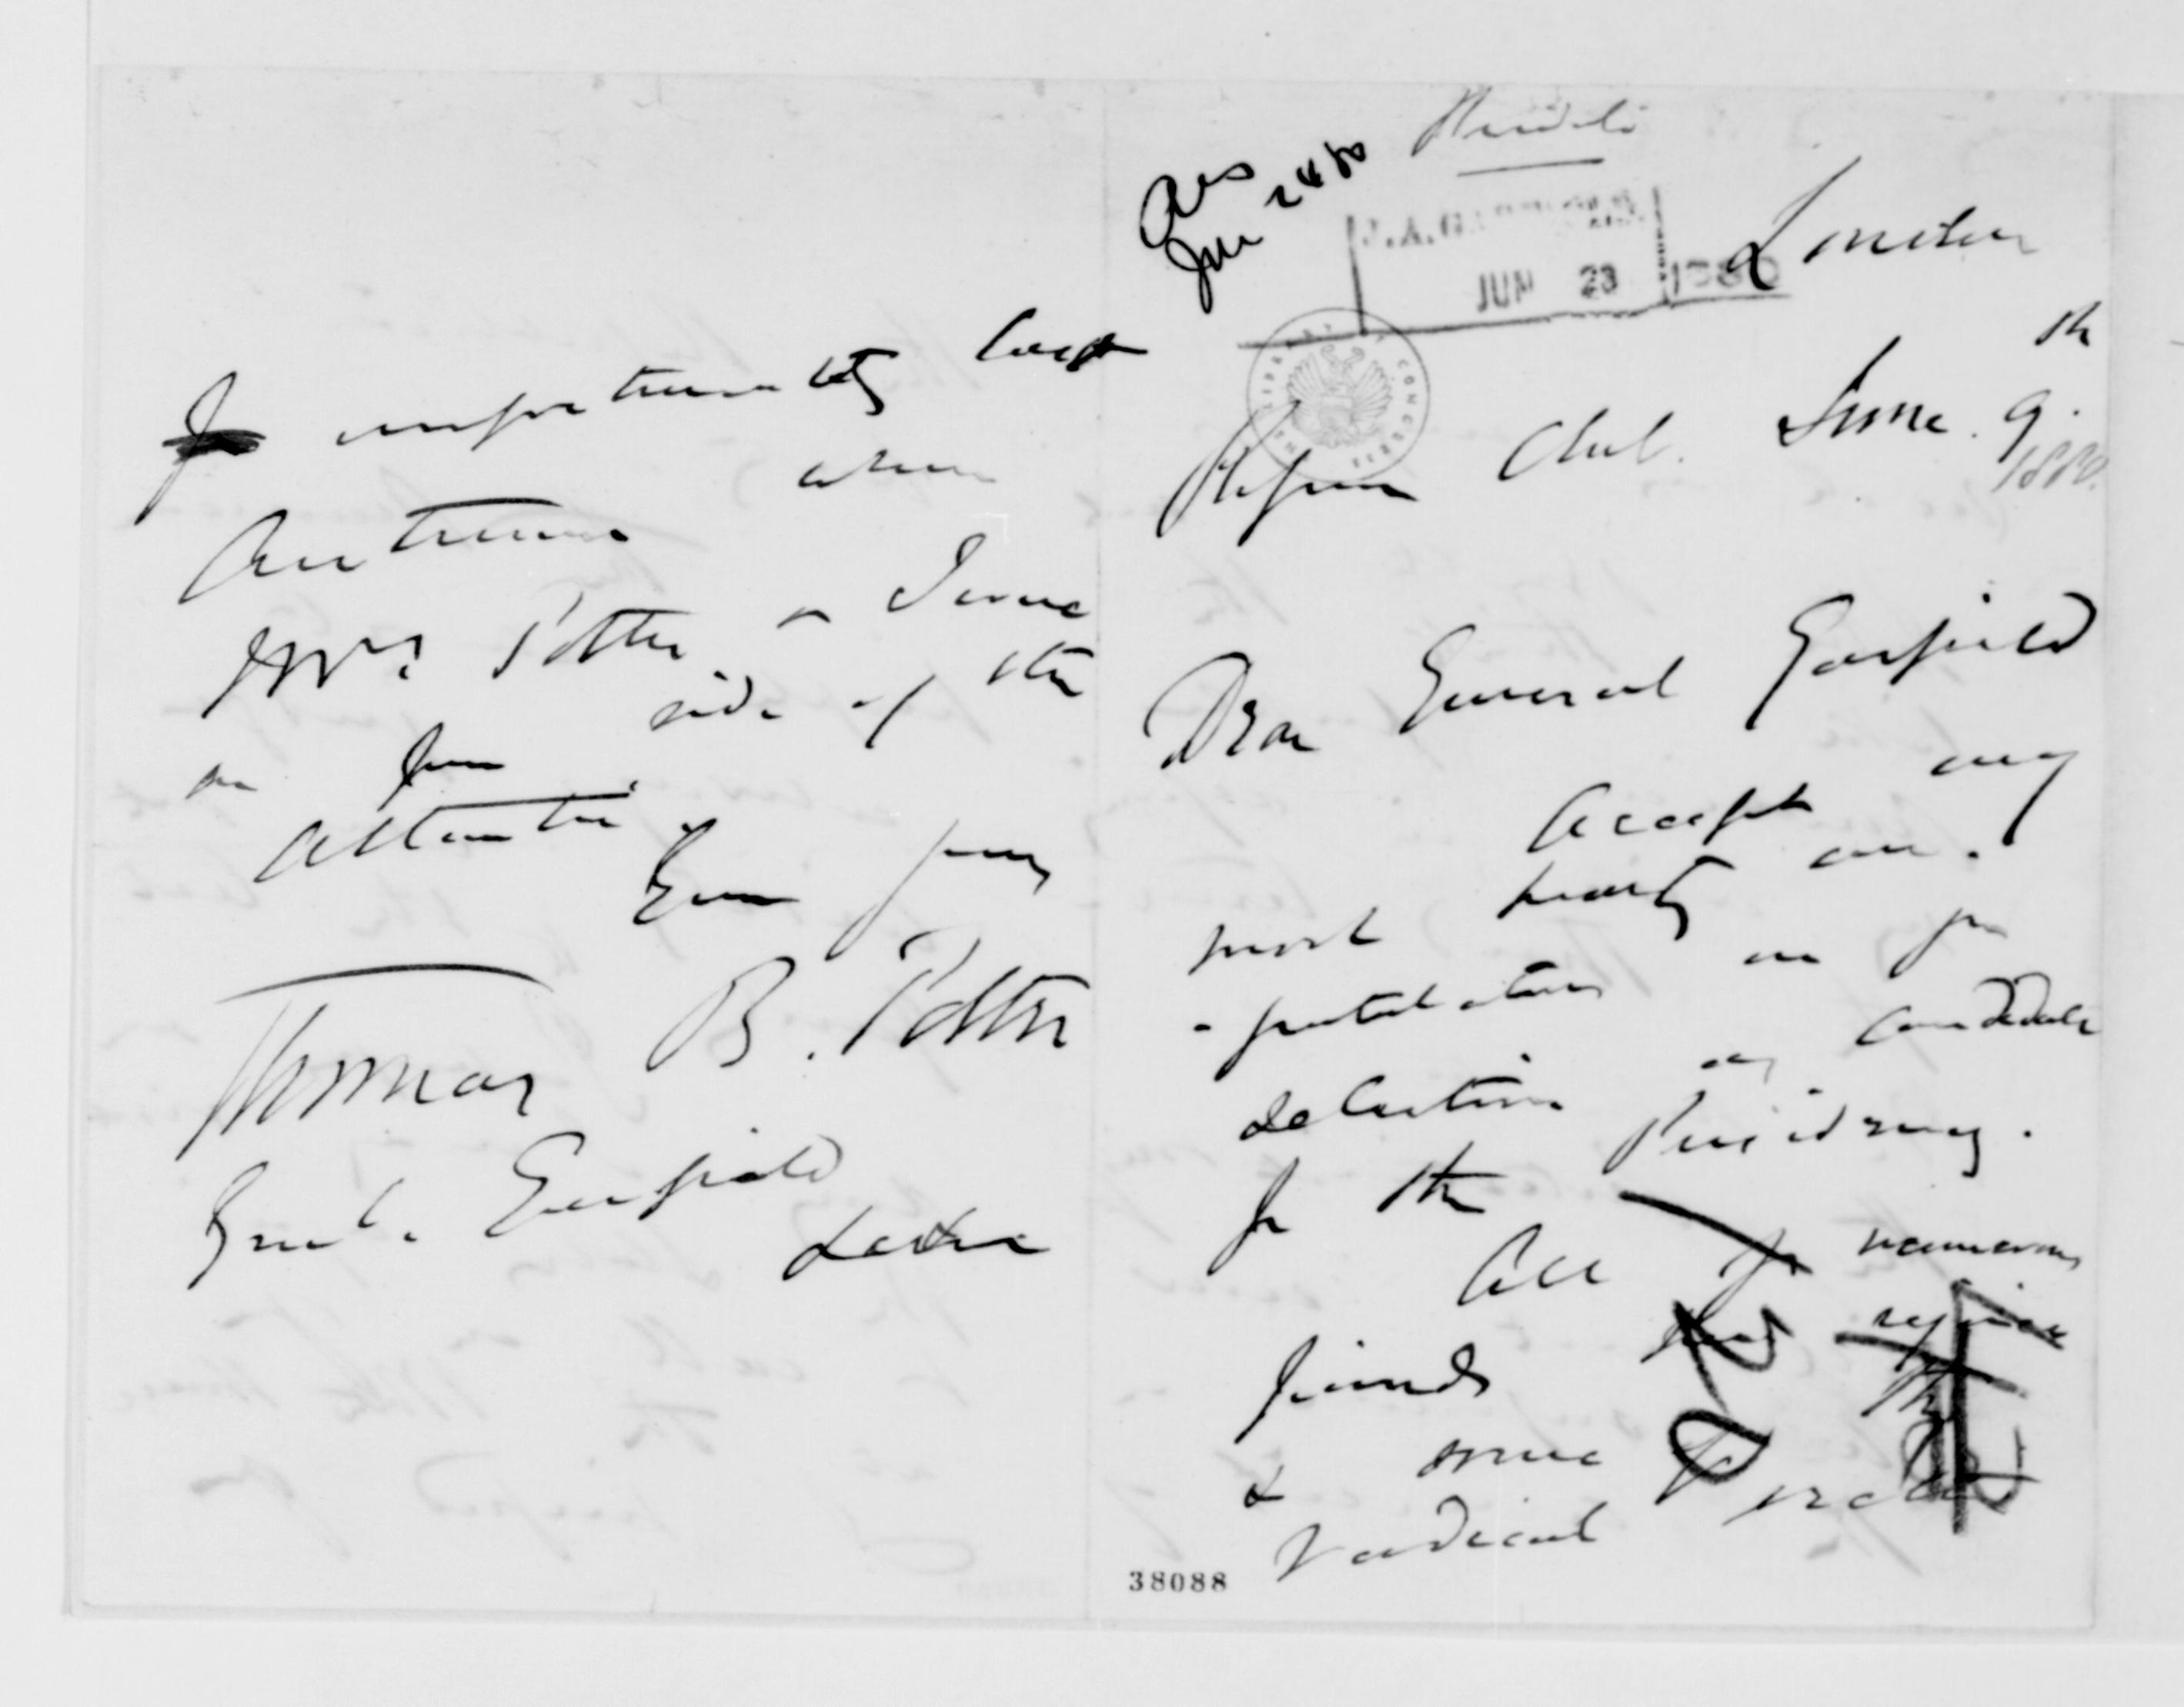 Ans
Jun 24 80
J. A. GARFIELD
JUN 23 1880
London
Reform Club. June. 9th.
1880.
Dear General Garfield
Accept my
most hearty con-
-gratulations on yr
selection as candidate
for the Presidency.
All yr numerous
friends here rejoice
& none
radical
38088
LIBRARY OF CONGRESS
unfortunately last
Autumn when
Mrs. Potter & I were
on your side of the
Atlantic.
Ever yours
Thomas B. Potter
Genl. Garfield